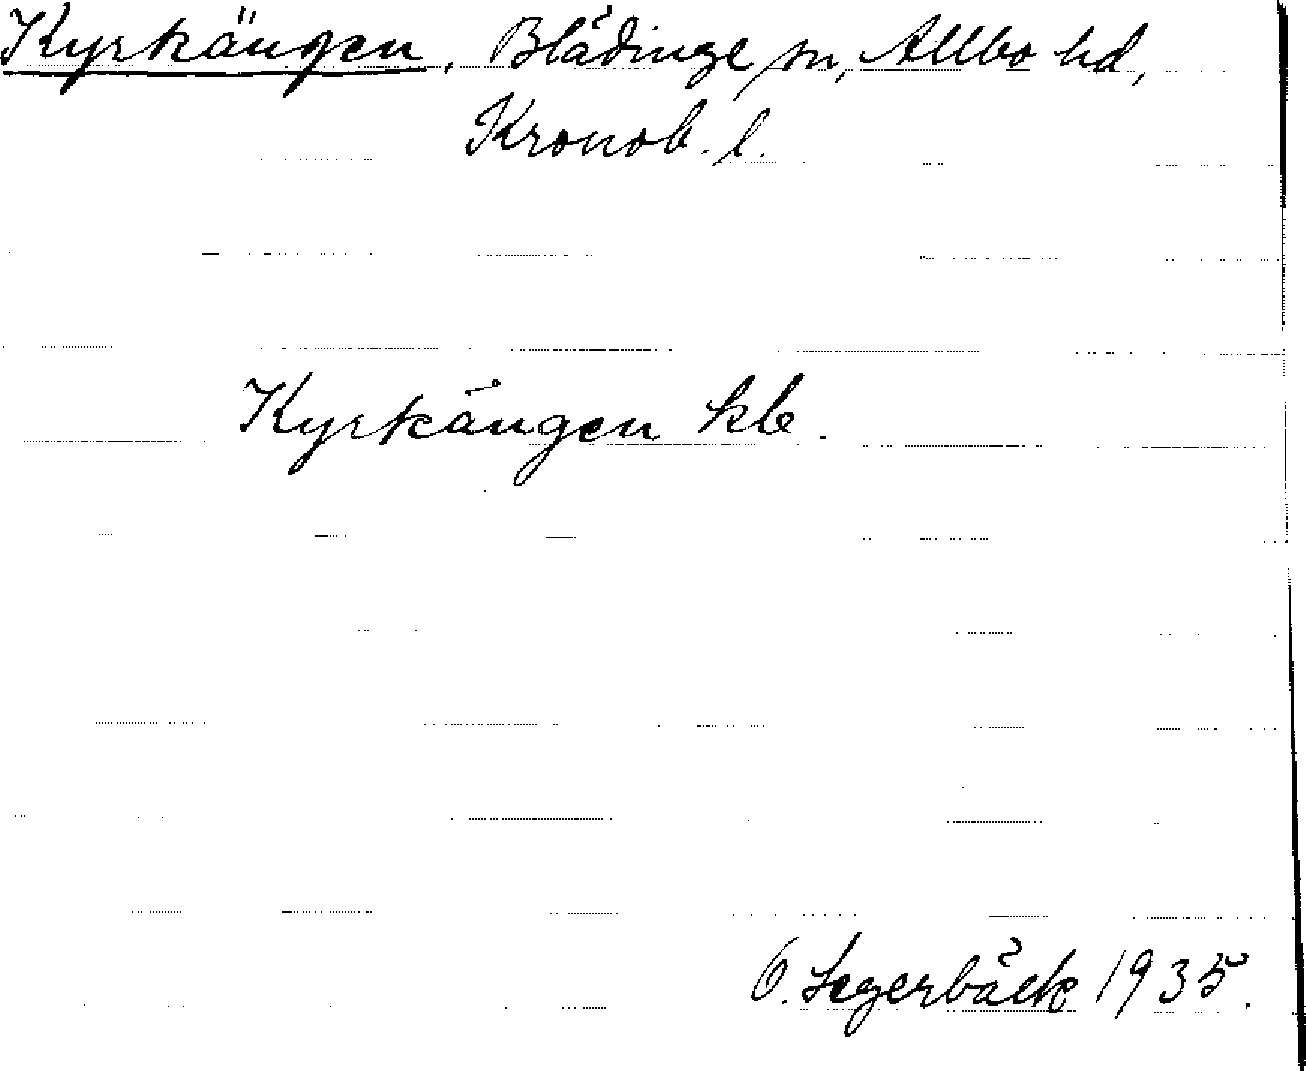 Kyrkängen, Blädinge sn, Allbo hd,
Kronob. l.
Kyrkängen kb.
O. Segerbäck 1935.